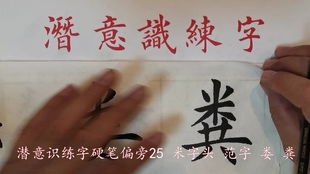 潛意識練字
粪
潜意识练字硬笔偏旁25 米字头 范字 娄 粪